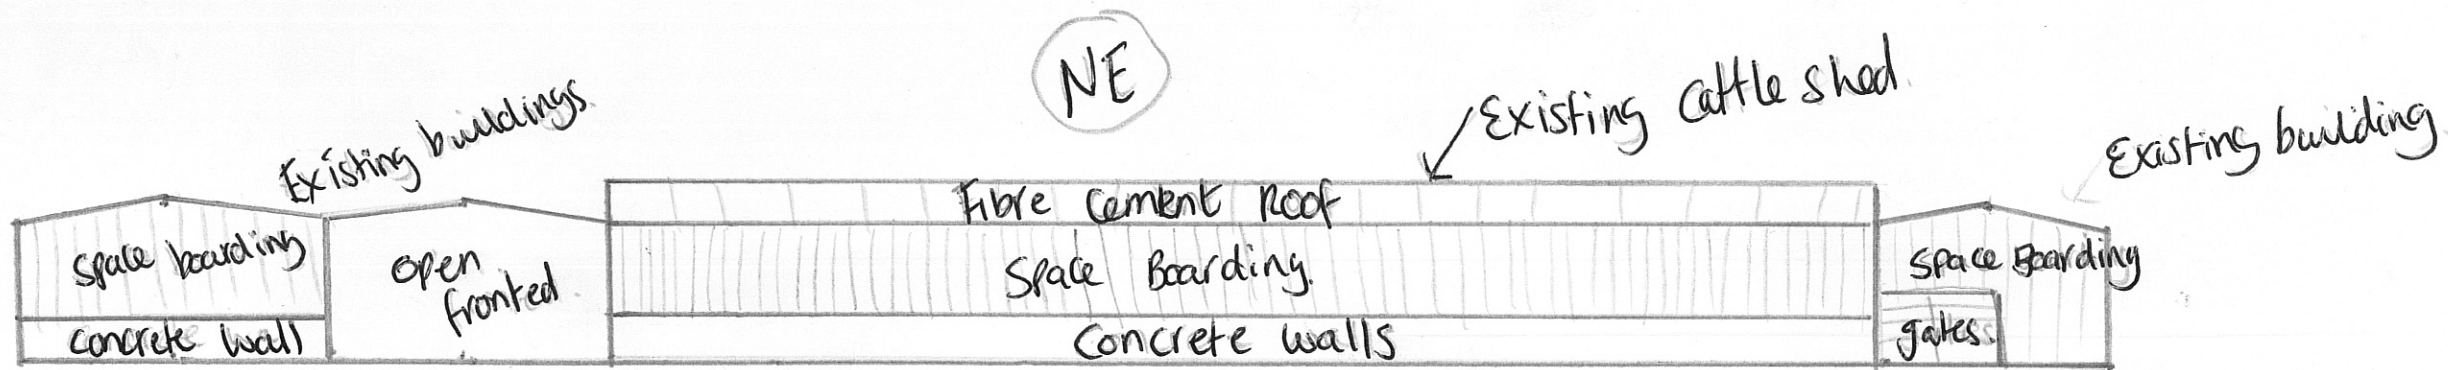 NE
Existing buildings
Existing cattle shed
Existing building
space boarding
concrete wall
open
fronted
Fibre Cement Roof
Space Boarding.
Concrete walls
Space Boarding
gates.